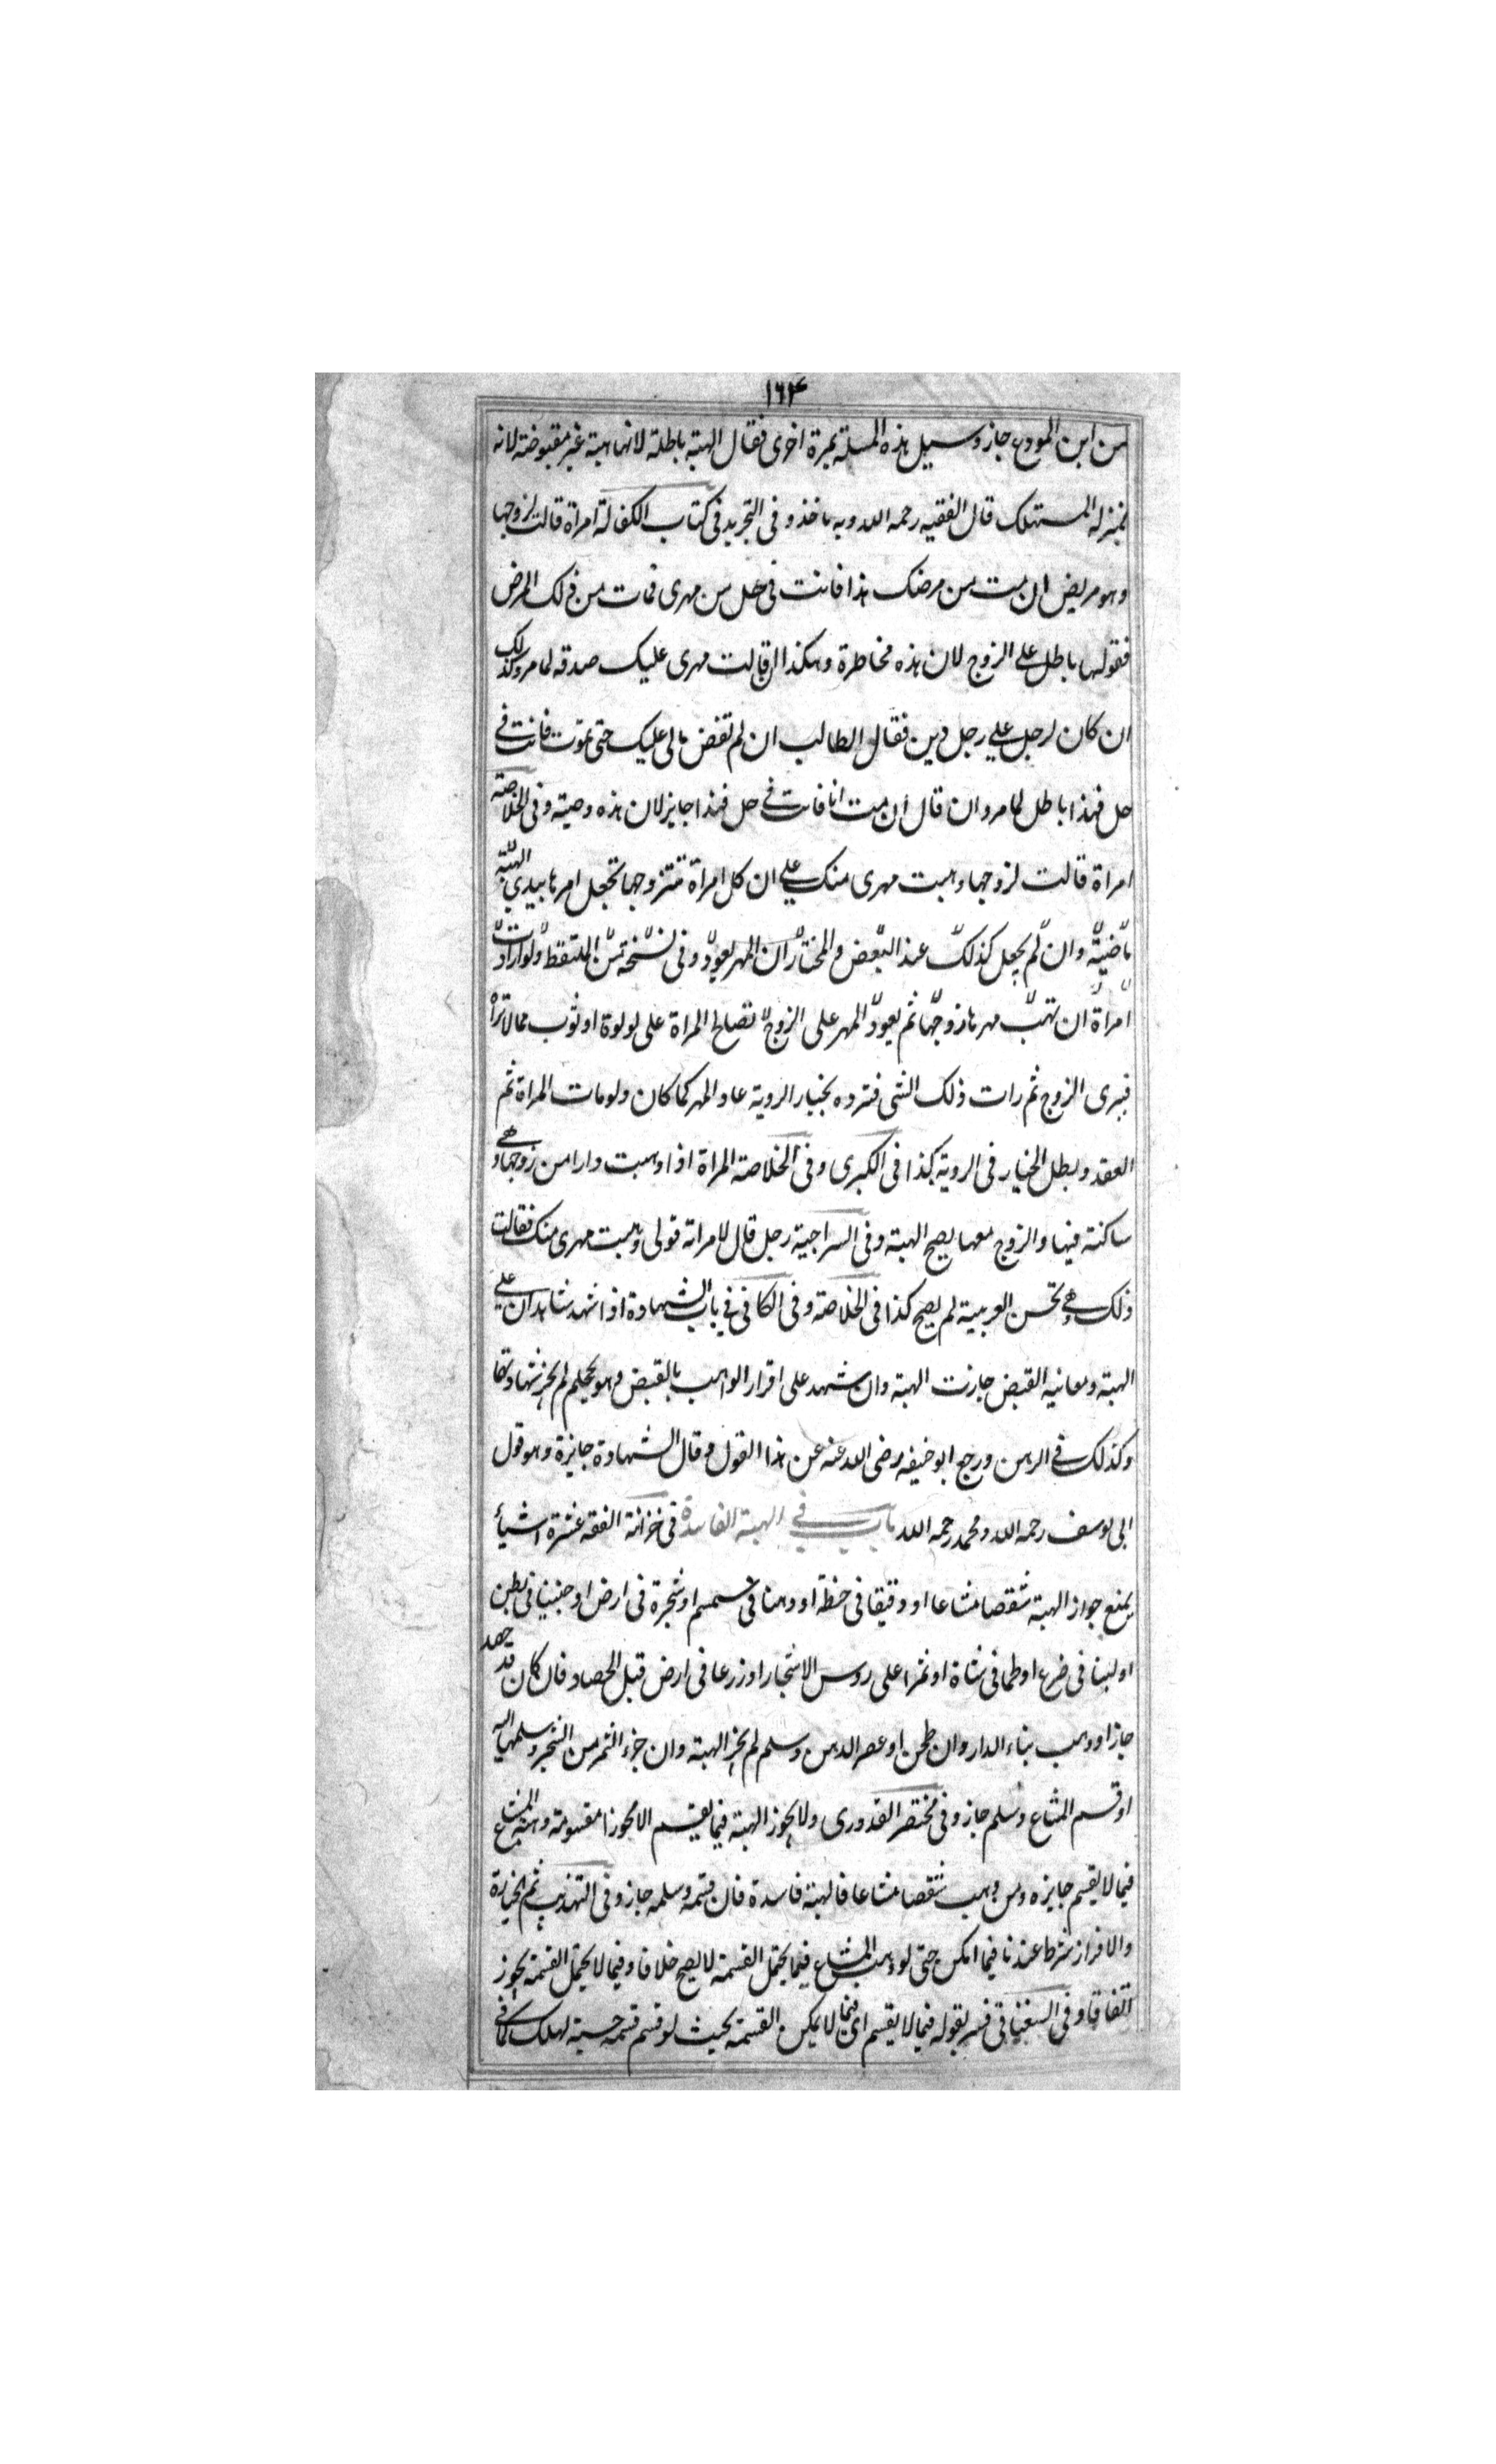 ١٦٤
من ابن المودع جاز وسيل هذه المسئلة بمرة اخرى فقال الهبة باطلة لانها هبة غير مقبوضة لانه
بمنزلة المستهلك قال الفقيه رحمه الله وبه ناخذ وفى التجريد فى كتاب الكفالة امراة قالت لزوجها
وهو مريض ان مت من مرضك هذا فانت فى حل من مهرى فمات من ذلك المرض
فقولها باطل على الزوج لان هذه مخاطرة وهكذا ان قالت مهرى عليك صدقه لما مر وكذلك
ان كان لرجل على رجل دين فقال الطالب ان لم تقض مالى عليك حتى تموت فانت فى
حل فهذا باطل لما مر وان قال ان مت انا فانت فى حل فهذا جايز لان هذه وصية وفى الخلاصة
امراة قالت لزوجها وهبت مهرى منك على ان كل امراة تتزوجها تجعل امرها بيدي الهبة
ماضية وان لم يجعل كذلك عند البعض والمختار ان المهر يعود وفى نسخة من الملتقط ولو ارادت
امراة ان تهب مهرها زوجها ثم يعود المهر على الزوج تصالح المراة على لولوة او ثوب مما لا تراه
فيبرى الزوج ثم رات ذلك الشى فترده بخيار الروية عاد المهر كما كان ولو مات المراة ثم
العقد وبطل الخيار فى الروية كذا فى الكبرى وفى الخلاصة المراة اذا وهبت دارا من زوجها وهى
ساكنة فيها والزوج معها يصح الهبة وفى السراجية رجل قال لامراته قولى وهبت مهرى منك فقالت
ذلك وهى تحسن العربية لم يصح كذا فى الخلاصة وفى الكافى فى باب الشهادة اذا شهد شاهدان على
الهبة ومعانيه القبض جازت الهبة وان شهد على اقرار الواهب بالقبض وهو يحكم لم يجز شهادتهما
وكذلك فى الرهن ورجع ابو حنيفه رضى الله عنه عن هذا القول وقال الشهادة جايزة وهو قول
ابى يوسف رحمه الله ومحمد رحمه الله باب فى الهبة الفاسدة فى خزانة الفقه عشرة اشياء
يمنع جواز الهبة شقصا مشاعا او دقيقا فى حنطة او دهنا فى سمسم او شجرة فى ارض او جنينا فى بطن
او لبنا فى ضرع او لحما فى شاة او ثمرا على روس الاشجار او زرعا فى ارض قبل الحصاد فان كان قد حصد
جاز او وهب بناء الدار وان طحن او عصر الدهن وسلم لم يجز الهبة وان جزء الثمر من الشجر وسلمها اليه
او قسم المشاع وسلم جاز وفى مختصر القدورى ولا يجوز الهبة فيما يقسم الا محوزا مقسومة وهبة المشاع
فيما لا يقسم جايزه ومن وهب شقصا مشاعا فالهبة فاسدة فان قسمه وسلمه جاز وفى التهذيب ثم الحيازة
والافراز شرط عندنا فيما امكن حتى لو وهب المشاع فيما يحتمل القسمة لا يصح خلافا وفيما لا يحتمل القسمة يجوز
اتفاقا وفى السغناقى فسر بقوله فيما لا يقسم اى فيما لا يمكن القسمة بحيث لو قسم قسمة حسية لهلك كما فى